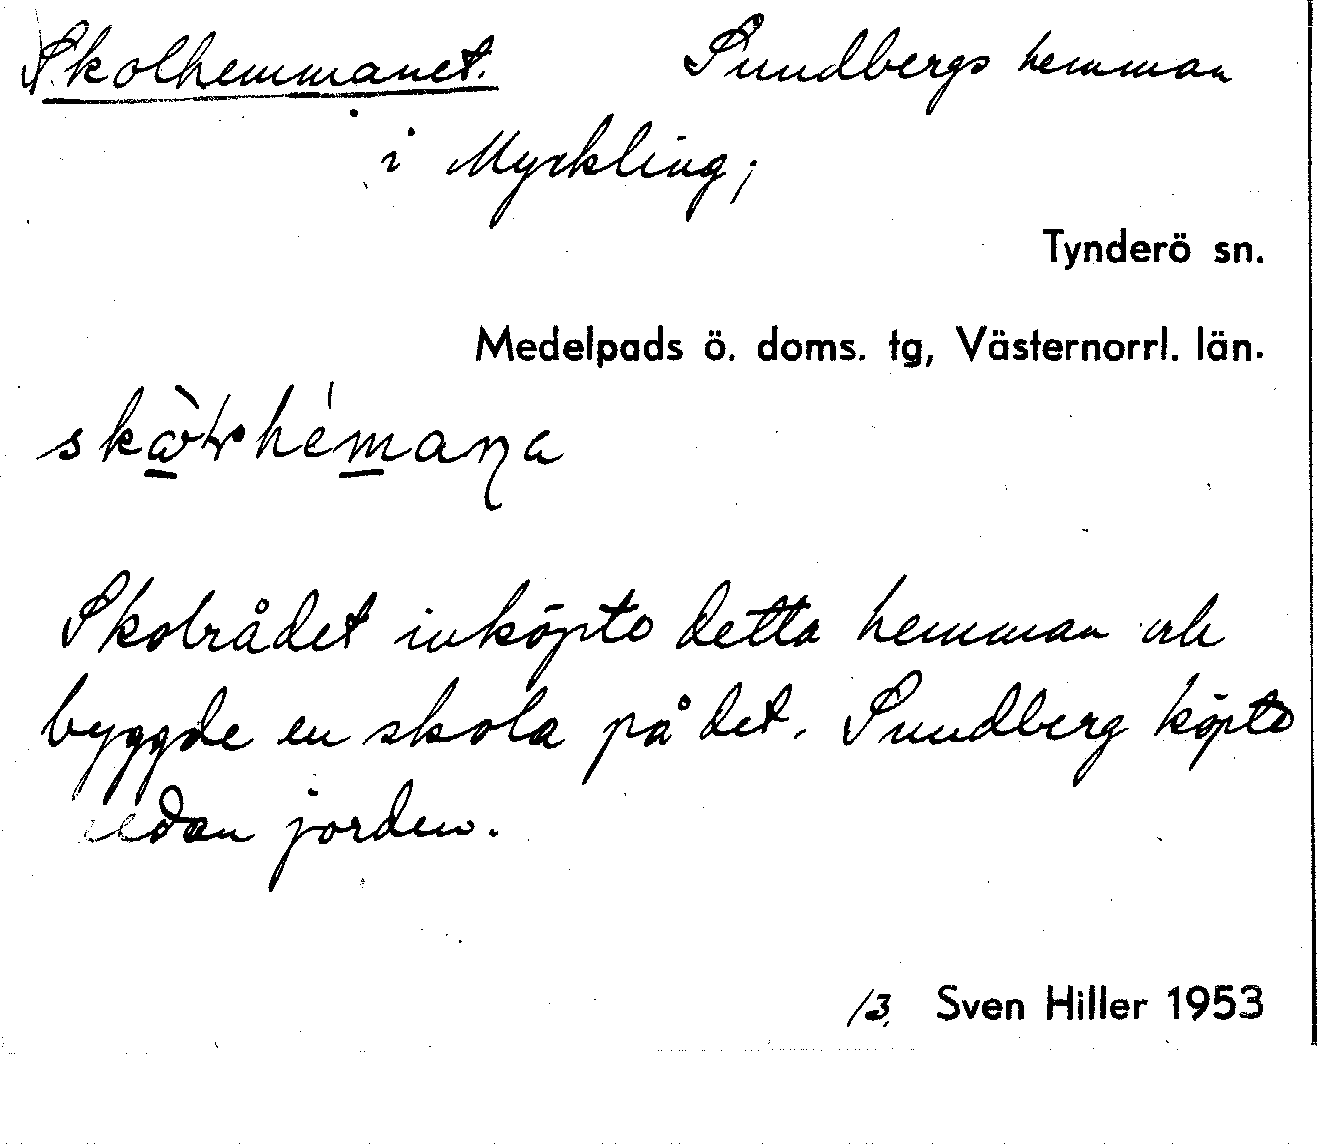 Skolhemmanet. Sundbergs hemman
i Myckling;
Tynderö sn.
Medelpads ö. doms. tg, Västernorrl. län.
Skolrådet inköpte detta hemman och
byggde en skola på det. Sundberg köpte
sedan jorden.
/3. Sven Hiller 1953